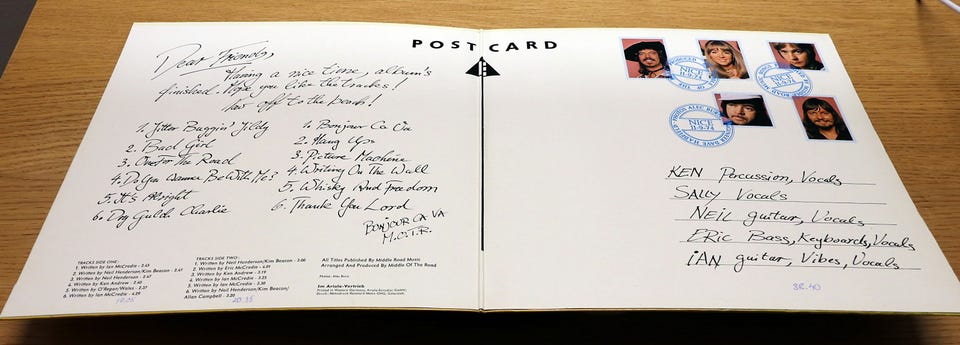 POSTCARD
Dear Friends,
Having a nice time, album's
finished. Hope you like the tracks!
Now off to the beach!
1. Jitter Buggin' Jildy
2. Bad Girl
3. One For The Road
4. Do You Wanna Be With Me?
5. It's Alright
6. Dog Guide Charlie
1. Bonjour Ca Va
2. Hang Ups
3. Picture Machine
4. Writing On The Wall
5. Whisky And Freedom
6. Thank You Lord
BONJOUR CA VA
M.O.T.R.
TRACKS SIDE ONE:
1. Written by Ian McCredie - 3.45
2. Written by Neil Henderson/Kim Beacon - 2.67
3. Written by Neil Henderson - 2.47
4. Written by Ken Andrew - 3.40
5. Written by O'Regan/Wales - 3.27
6. Written by Ian McCredie - 4.39
TRACKS SIDE TWO:
1. Written by Neil Henderson/Kim Beacon - 3.06
2. Written by Eric McCredie
3. Written by Ken Andrew - 3.19
4. Written by Ian McCredie
5. Written by Ian McCredie
6. Written by Neil Henderson/Kim Beacon/
Allan Campbell - 3.20
20.35
All Titles Published By Middle Road Music
Arranged And Produced By Middle Of The Road
Im Ariola-Vertrieb
NICE
11-9-74
NICE
11-9-74
NICE
11-9-74
KEN Percussion, Vocals
SALLY Vocals
NEIL guitar, Vocals
ERIC Bass, Keyboards, Vocals
IAN guitar, Vibes, Vocals
38.40